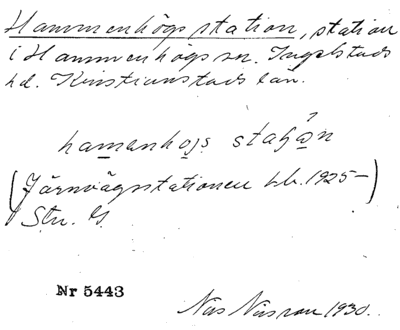 Hammenhögs station, station
i Hammenhögs sn. Ingelstads
hd. Kristianstads län.
hamenhojs
(Järnvägsstationen 1925-)
Nr 5443
1930.